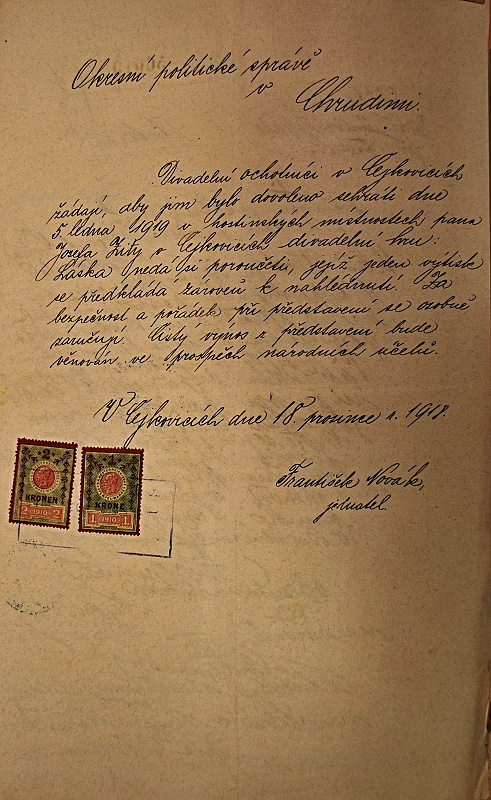 Okresní politické správě
v
Chrudimi.
Divadelní ochotníci v Cejkovicích
žádají, aby jim bylo dovoleno sehráti dne
5. ledna 1919 v hostinských místnostech pana
Josefa Zity v Cejkovicích divadelní hru:
Láska nedá si poroučeti, jejíž jeden výtisk
se předkládá zároveň k nahlédnutí. Za
bezpečnost a pořádek při představení se osobně
zaručují. Čistý výnos z představení bude
věnován ve prospěch národních účelů.
V Cejkovicích dne 18. prosince r. 1918.
František Novák,
jednatel.
2 KRONEN 2 1910 2
1 KRONE 1 1910 1